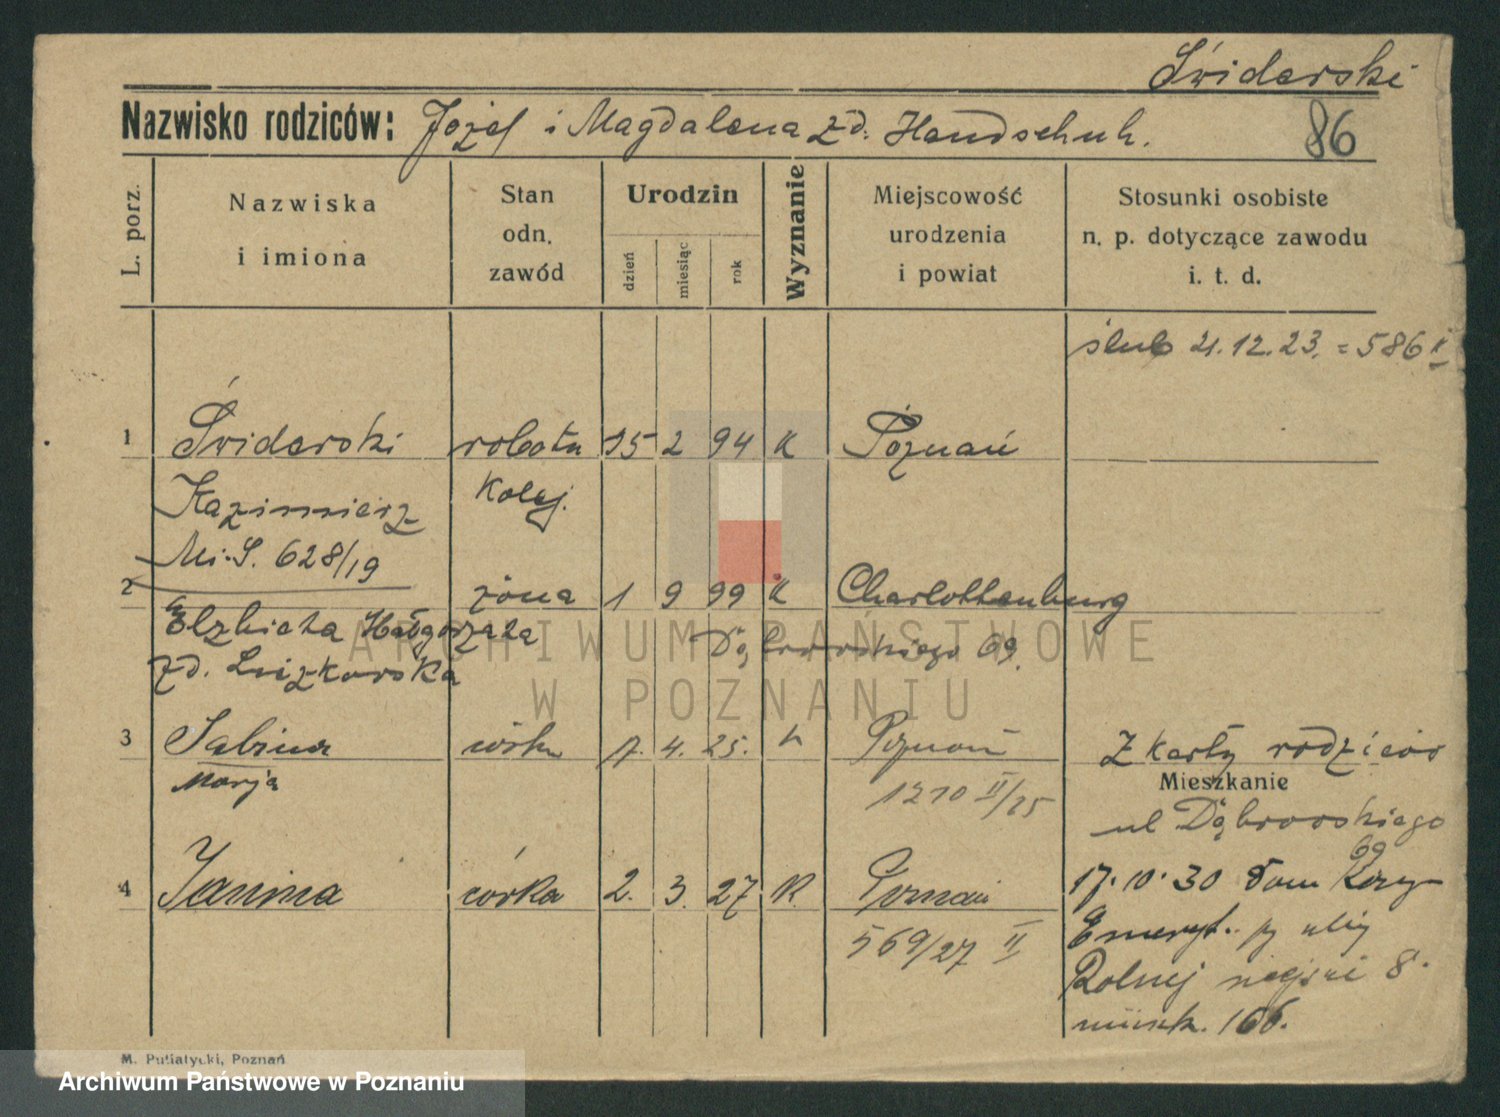 Świderski
Nazwisko rodziców: Józef i Magdalena z d. Handschuh.
86
L. porz.
Nazwiska
i imiona
Stan
odn.
zawód
Urodzin
dzień
miesiąc
rok
Wyznanie
Miejscowość
urodzenia
i powiat
Stosunki osobiste
n. p. dotyczące zawodu
i. t. d.
ślub 21.12.23. = 586 II
1 Świderski robotn 15 2 94 K Poznań
Kazimierz kolej.
Mi.S. 628/19
2 żona 1 9 99 K Charlottenburg
Elżbieta Małgorzata Dąbrowskiego 69.
z d. Liczkowska
3 Sabina córka 7. 4. 25. K Poznań Z karty rodziców
Marja 1210 II/25 Mieszkanie
ul Dąbrowskiego
69
4 Janina córka 2. 3. 27 K. Poznań 17.10.30 Dom
569/27 II Emeryt. py ulicy
Rolnej 8
mieszk. 166.
M. Putiatycki, Poznań
ARCHIWUM PAŃSTWOWE
W POZNANIU
Archiwum Państwowe w Poznaniu